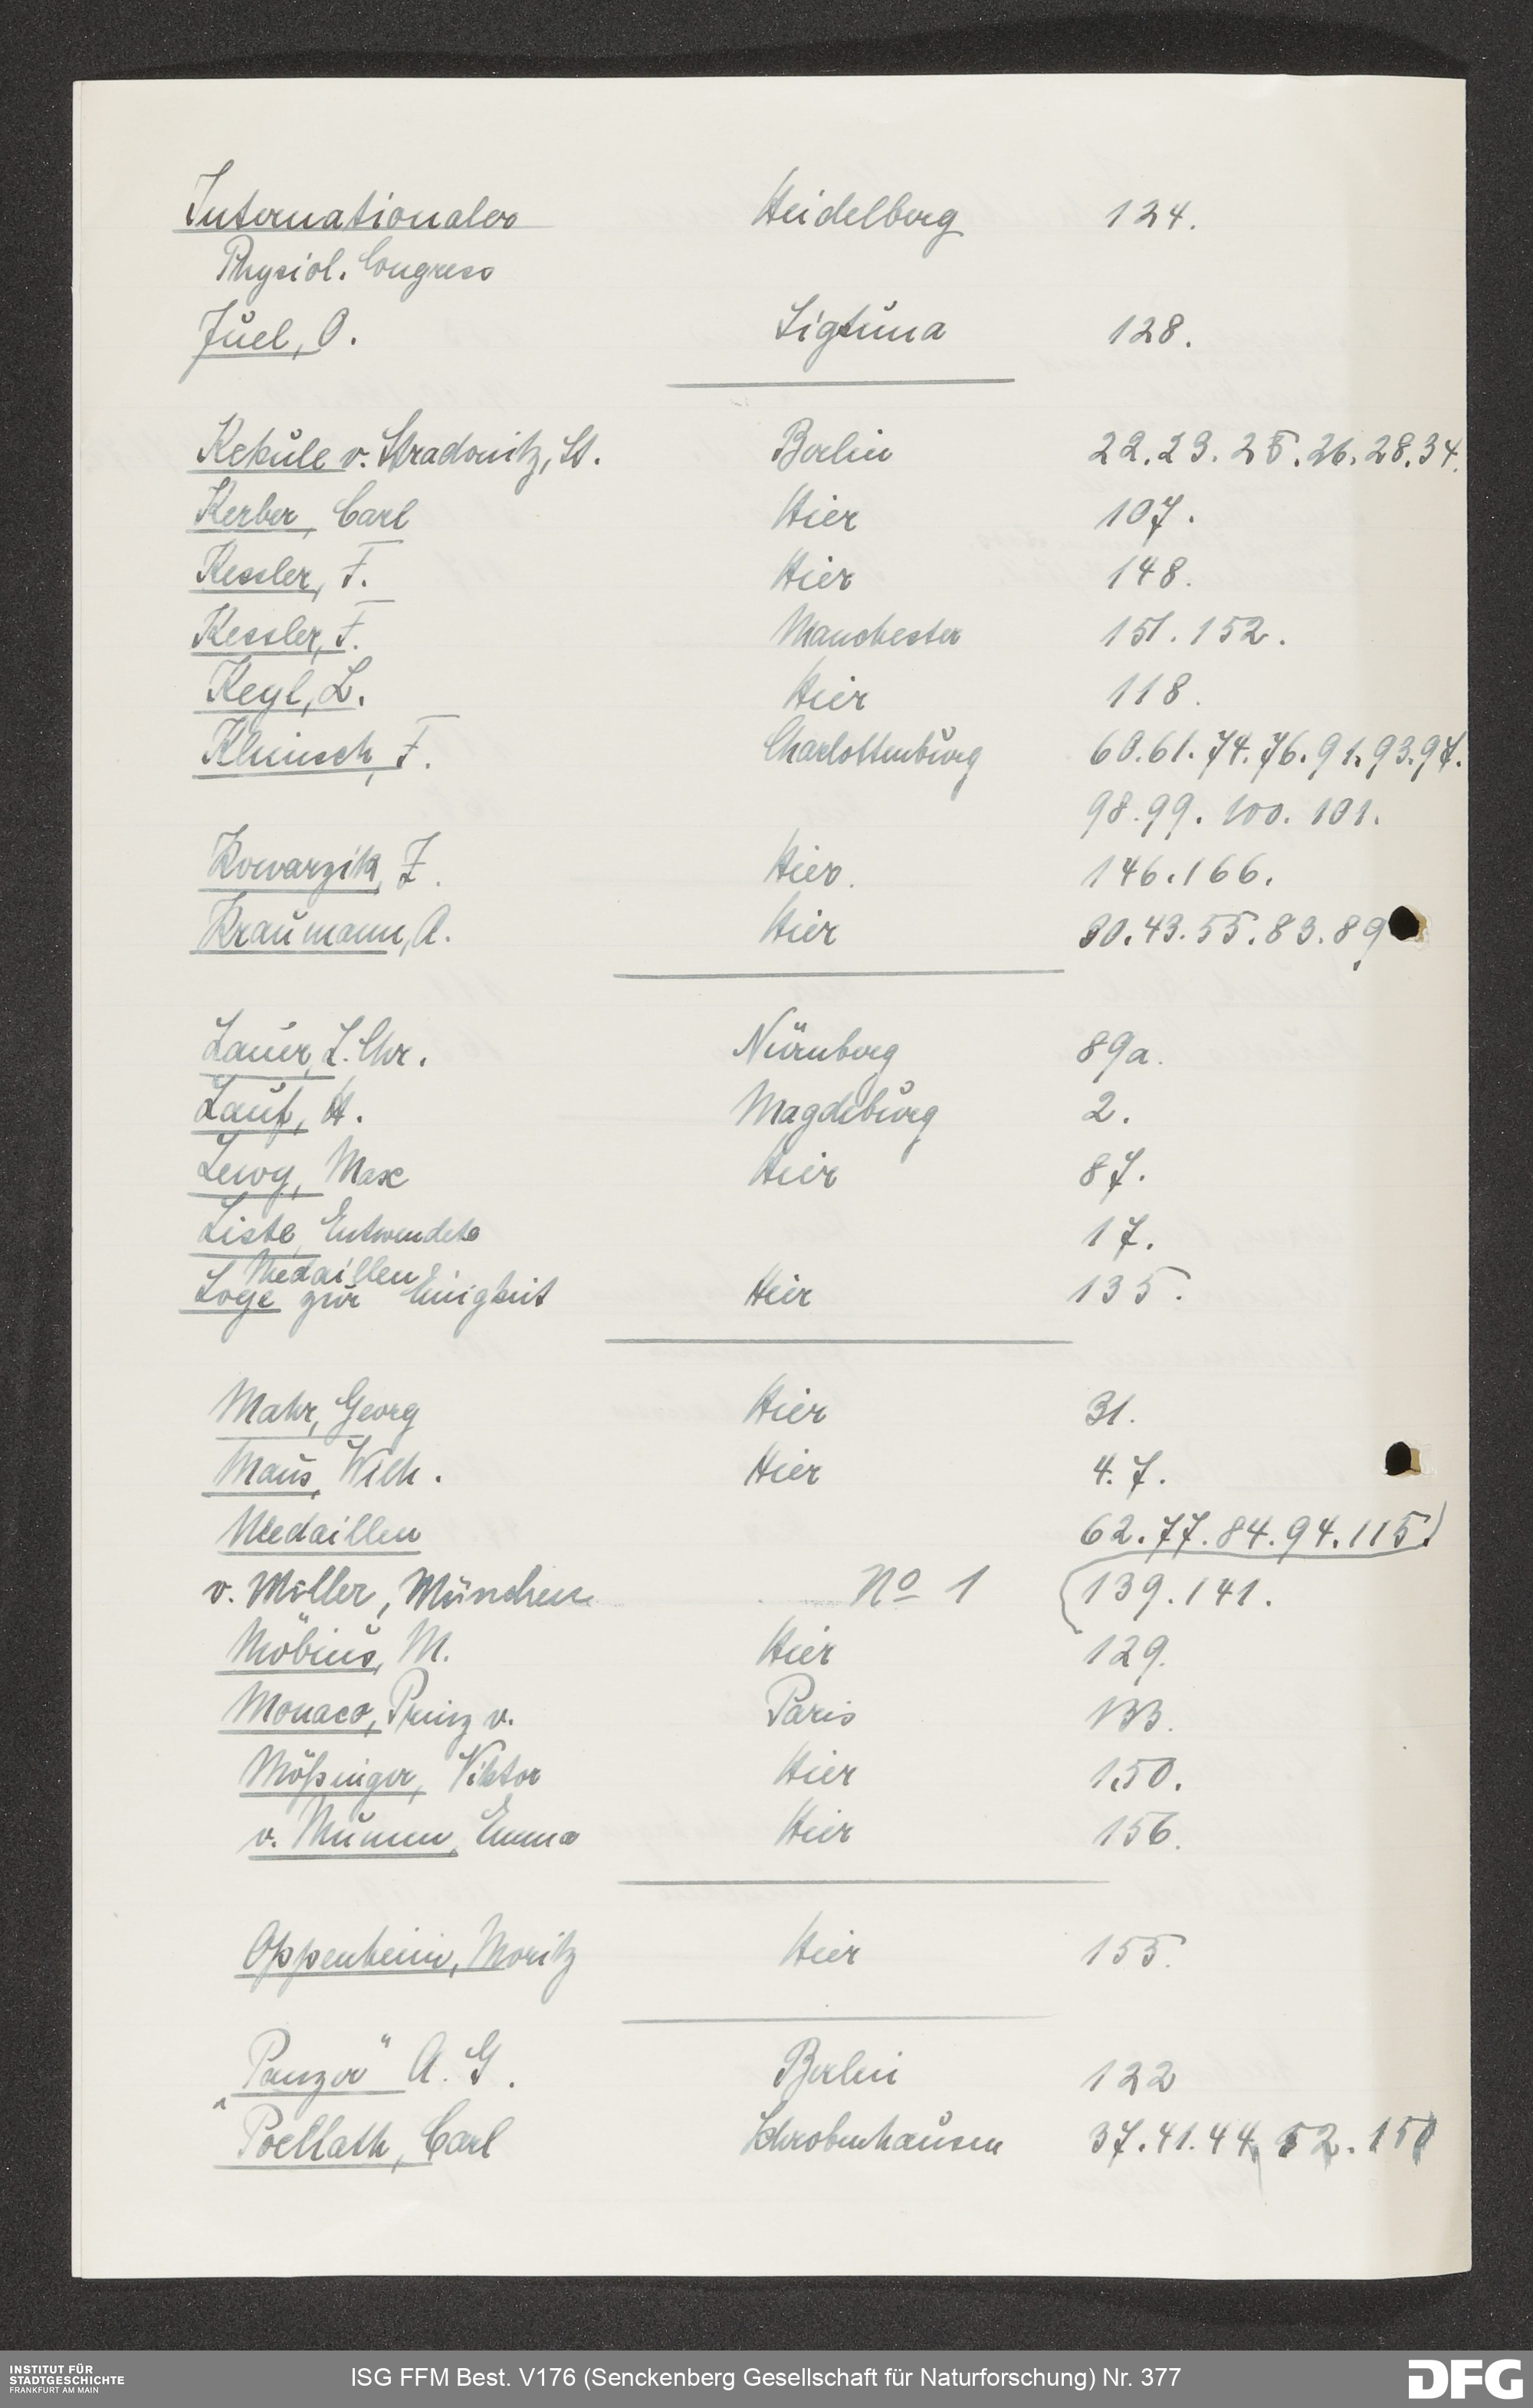 Internationaler Heidelberg 124.
Physiol. Congress
Juel, O. Sigtuna 128.
Kekule v. Stradonitz, St. Berlin 22. 23. 25. 26. 28. 34.
Kerber, Carl Hier 107.
Kessler, F. Hier 148.
Kessler, F. Manchester 151. 152.
Keyl, L. Hier 118.
Klimsch, F. Charlottenburg 60. 61. 74. 76. 91. 93. 97.
98. 99. 100. 101.
Kowarzik, J. Hier. 146. 166.
Kraumann, A. Hier 30. 43. 55. 83. 89
Lauer, L. Chr. Nürnberg 89a.
Lauf, H. Magdeburg 2.
Lewy, Max Hier 87.
Liste, Entwendete 17.
Medaillen
Loge zur Einigkeit Hier 135.
Mahr, Georg Hier 31.
Maus, Wilh. Hier 4. 7.
Medaillen 62. 77. 84. 94. 115.)
v. Miller, München No 1 (139. 141.
Möbius, M. Hier 129.
Monaco, Prinz v. Paris 133.
Mößinger, Viktor Hier 150.
v. Mumm, Emma Hier 156.
Oppenheim, Moritz Hier 155.
"Panzer" A. G. Berlin 122
Poellath, Carl Schrobenhausen 37. 41. 44. 52. 150
INSTITUT FÜR
STADTGESCHICHTE
FRANKFURT AM MAIN
ISG FFM Best. V176 (Senckenberg Gesellschaft für Naturforschung) Nr. 377
DFG